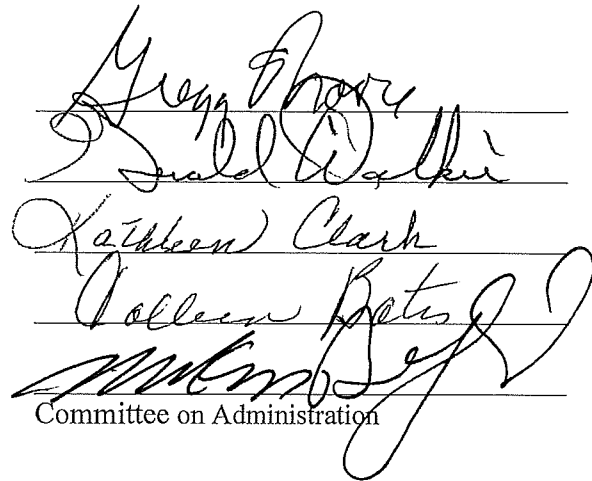 Gregg Moore
Gerald Walkir
Kathleen Clark
Colleen Bates
Committee on Administration